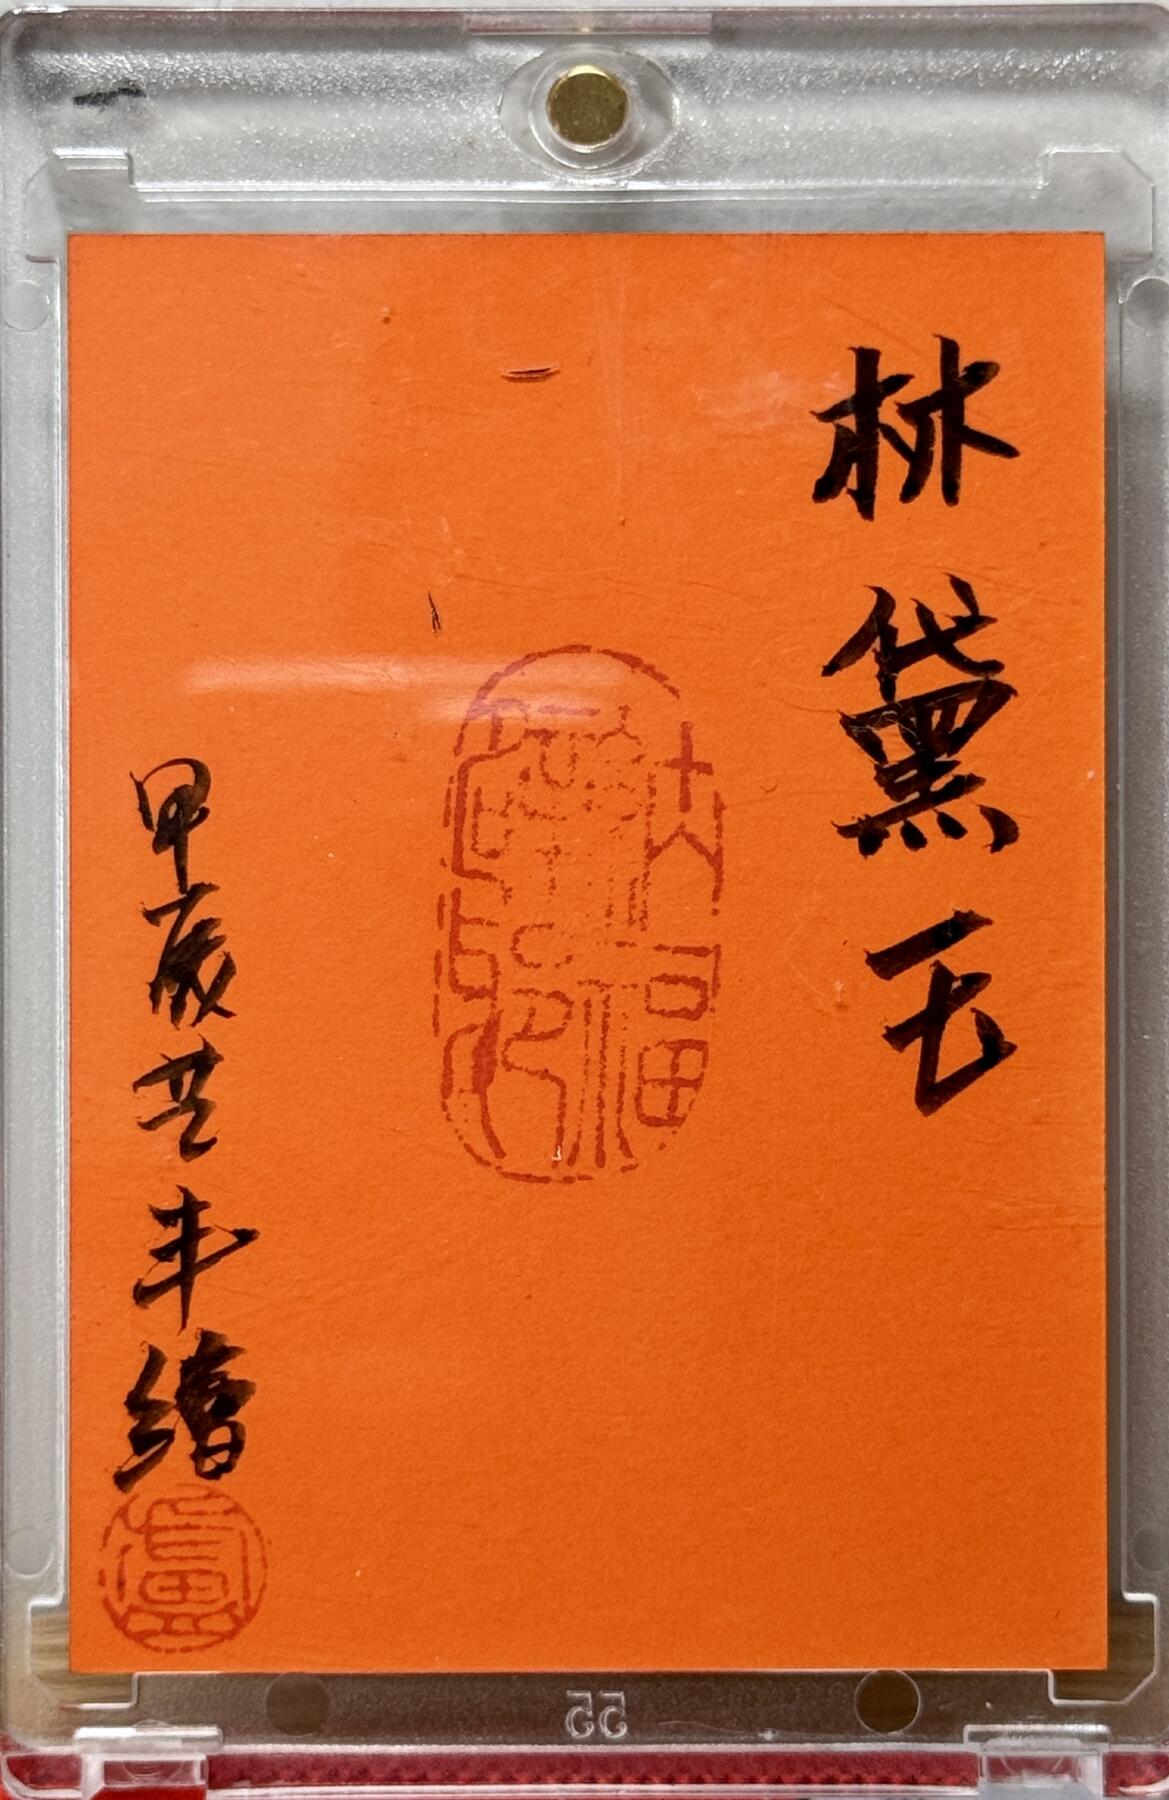 林黛玉
甲辰芒丰繪
盧
55